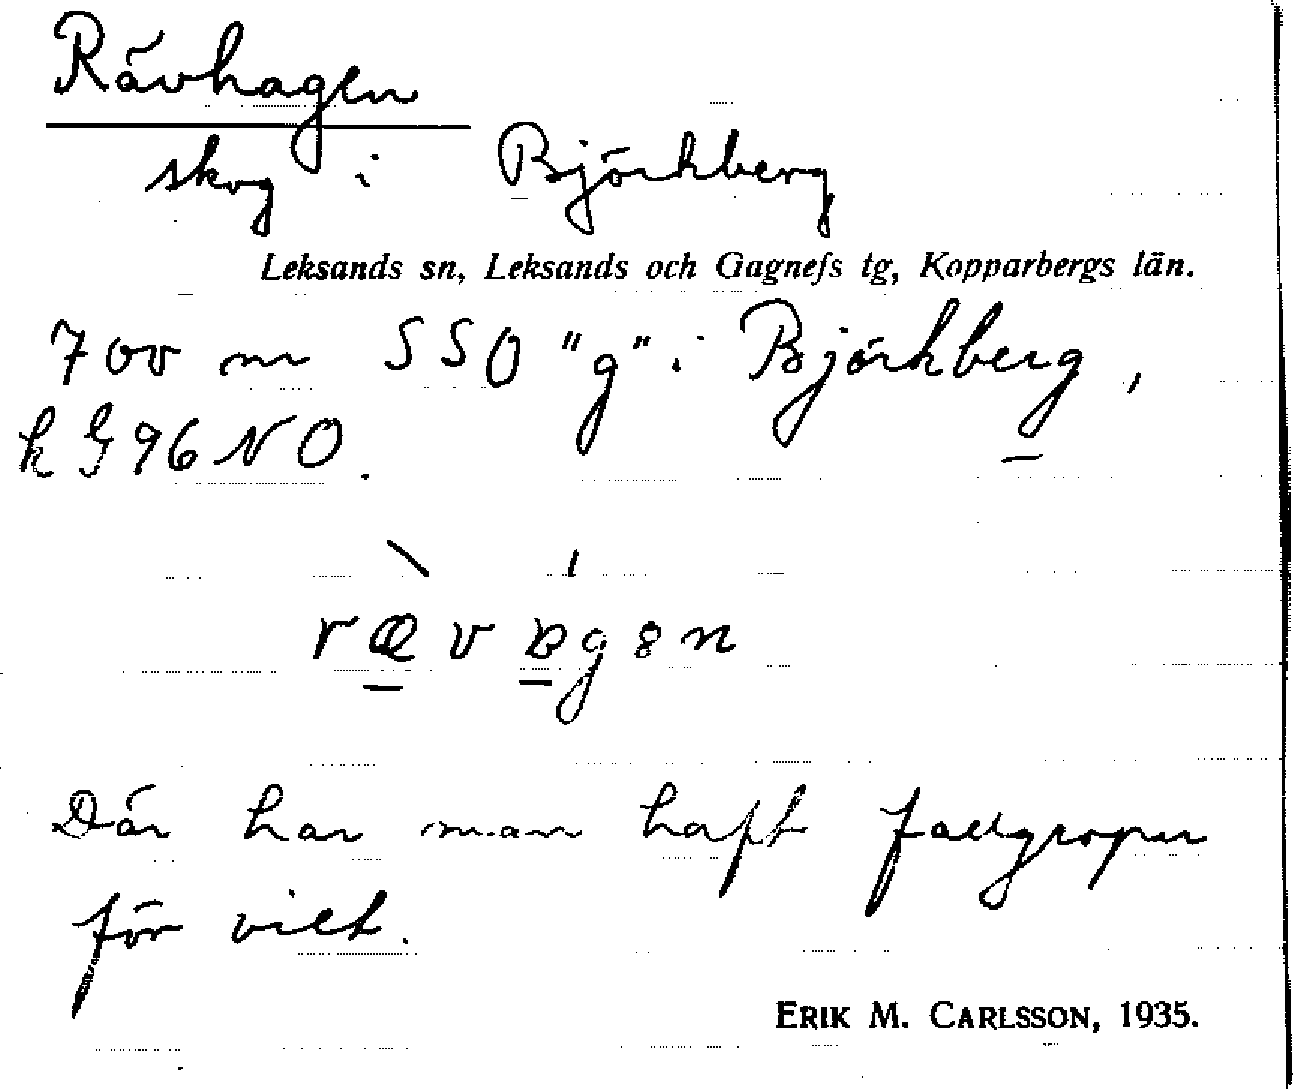 Rävhagen
skog i Björkberg
Leksands sn, Leksands och Gagnefs tg, Kopparbergs län.
700 m SSO "g" i Björkberg,
k G 96 NO.
Där har man haft fallgropar
för vilt.
ERIK M. CARLSSON, 1935.